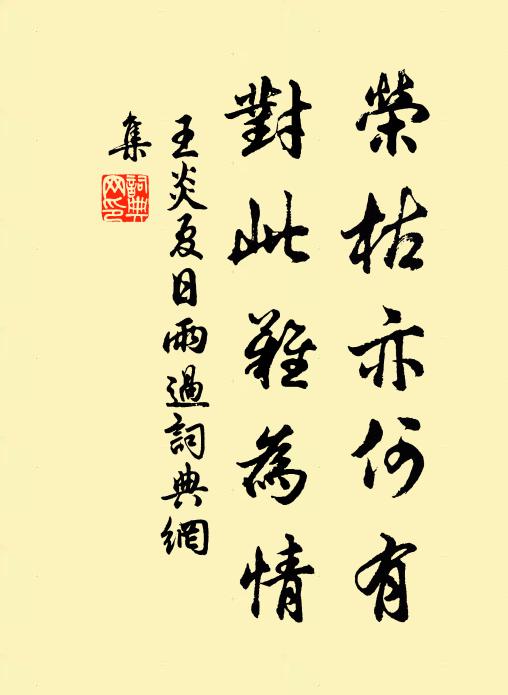 榮枯亦何有
對此難為情
王炎夏日雨過詞典網
集
詞典
网印